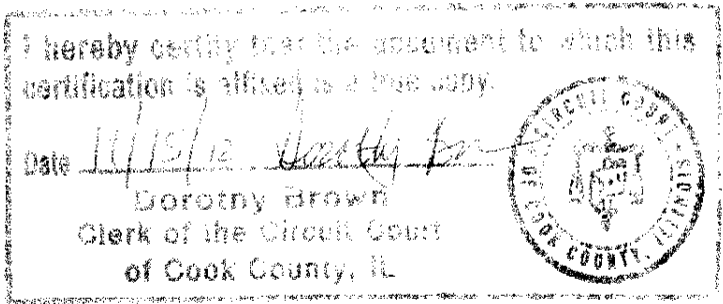 I hereby certify that the document to which this
certification is affixed is a true copy.
Date 11/15/12 Dorothy Brown
Dorothy Brown
Clerk of the Circuit Court
of Cook County, IL
CIRCUIT COURT OF COOK COUNTY, ILLINOIS